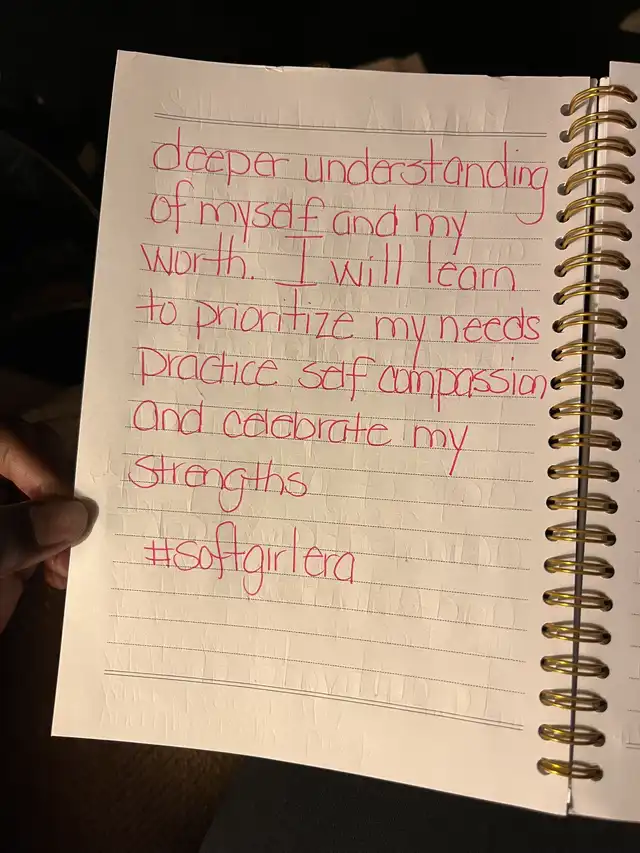 deeper understanding
of myself and my
worth. I will learn
to prioritize my needs
practice self compassion
and celebrate my
strengths
#softgirlera